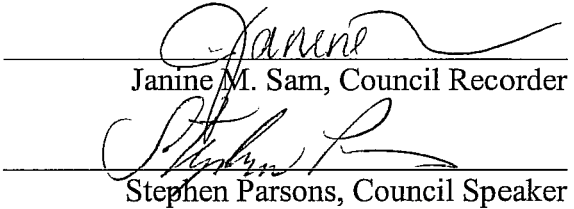 Janine
Janine M. Sam, Council Recorder
Stephen P
Stephen Parsons, Council Speaker